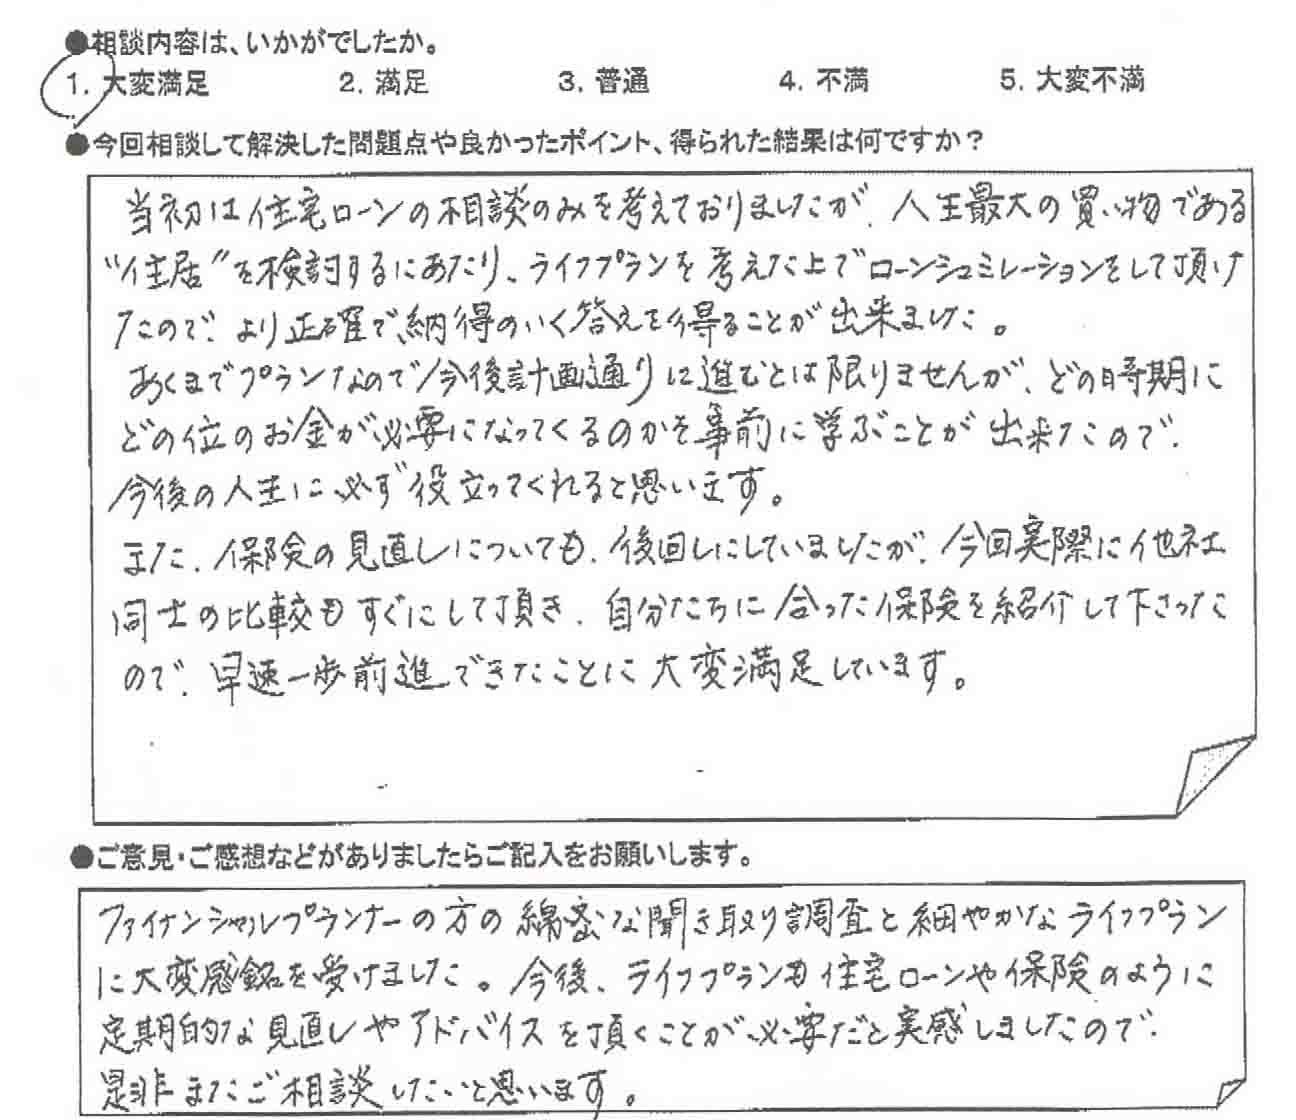 ●相談内容は、いかがでしたか。
1. 大変満足 2. 満足 3. 普通 4. 不満 5. 大変不満
●今回相談して解決した問題点や良かったポイント、得られた結果は何ですか？
当初は住宅ローンの相談のみを考えておりましたが、人生最大の買い物である
"住居"を検討するにあたり、ライフプランを考えた上でローンシュミレーションをして頂け
たので、より正確で、納得のいく答えを得ることが出来ました。
あくまでプランなので今後計画通りに進むとは限りませんが、どの時期に
どの位のお金が必要になってくるのかを事前に学ぶことが出来たので、
今後の人生に必ず役立ってくれると思います。
また、保険の見直しについても、後回しにしていましたが、今回実際に他社
同士の比較もすぐにして頂き、自分たちに合った保険を紹介して下さった
ので、早速一歩前進できたことに大変満足しています。
●ご意見・ご感想などがありましたらご記入をお願いします。
ファイナンシャルプランナーの方の綿密な聞き取り調査と細やかなライフプラン
に大変感銘を受けました。今後、ライフプランも住宅ローンや保険のように
定期的な見直しやアドバイスを頂くことが必要だと実感しましたので、
是非またご相談したいと思います。